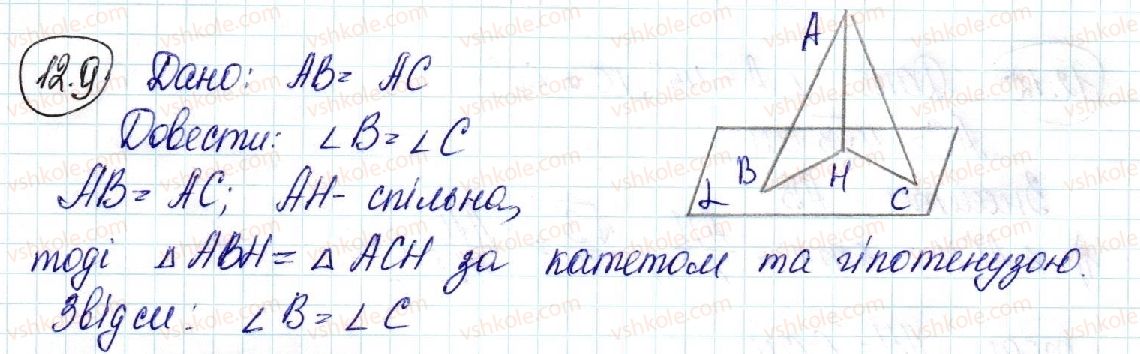 12.9 Дано: AB = AC
Довести: ∠B = ∠C
AB = AC; AH - спільна,
тоді △ABH = △ACH за катетом та гіпотенузою.
Звідси: ∠B = ∠C
A
B H C
α
vshkole.com